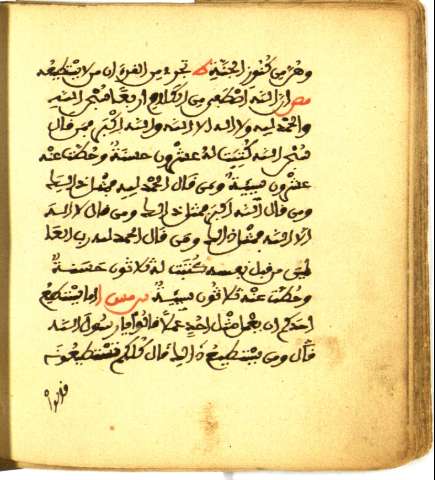 وهن من كنوز الجنة ط تجزئ من القرءان من لا يستطيعه
مص ان الله اصطفى من الكلام اربعا سبحن الله
والحمد لله ولا اله الا الله والله اكبر فمن قال
سبحن الله كتبت له عشرون حسنة وحطت عنه
عشرون سيئة ومن قال الحمد لله فمثل ذلك
ومن قال الله اكبر فمثل ذلك ومن قال لا اله
الا الله فمثل ذلك ومن قال الحمد لله رب العا
لمين من قبل نفسه كتبت له ثلاثون حسنة
وحطت عنه ثلاثون سيئة س مس ا اما يستطيع
احدكم ان يعمل مثل احد عملا قالوا يا رسول الله
قال ومن يستطيع ذلك قال كلكم تستطيعونه
قالوا